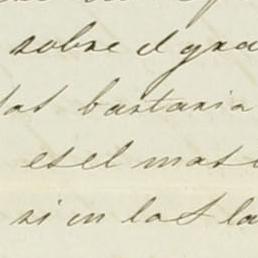 sobre el gra
las bastaria
es el mas
si en las la